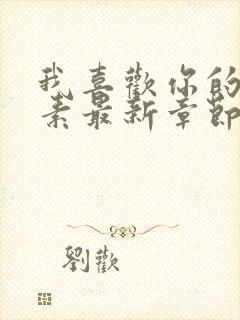 我喜歡你的
素最新章節
劉歡